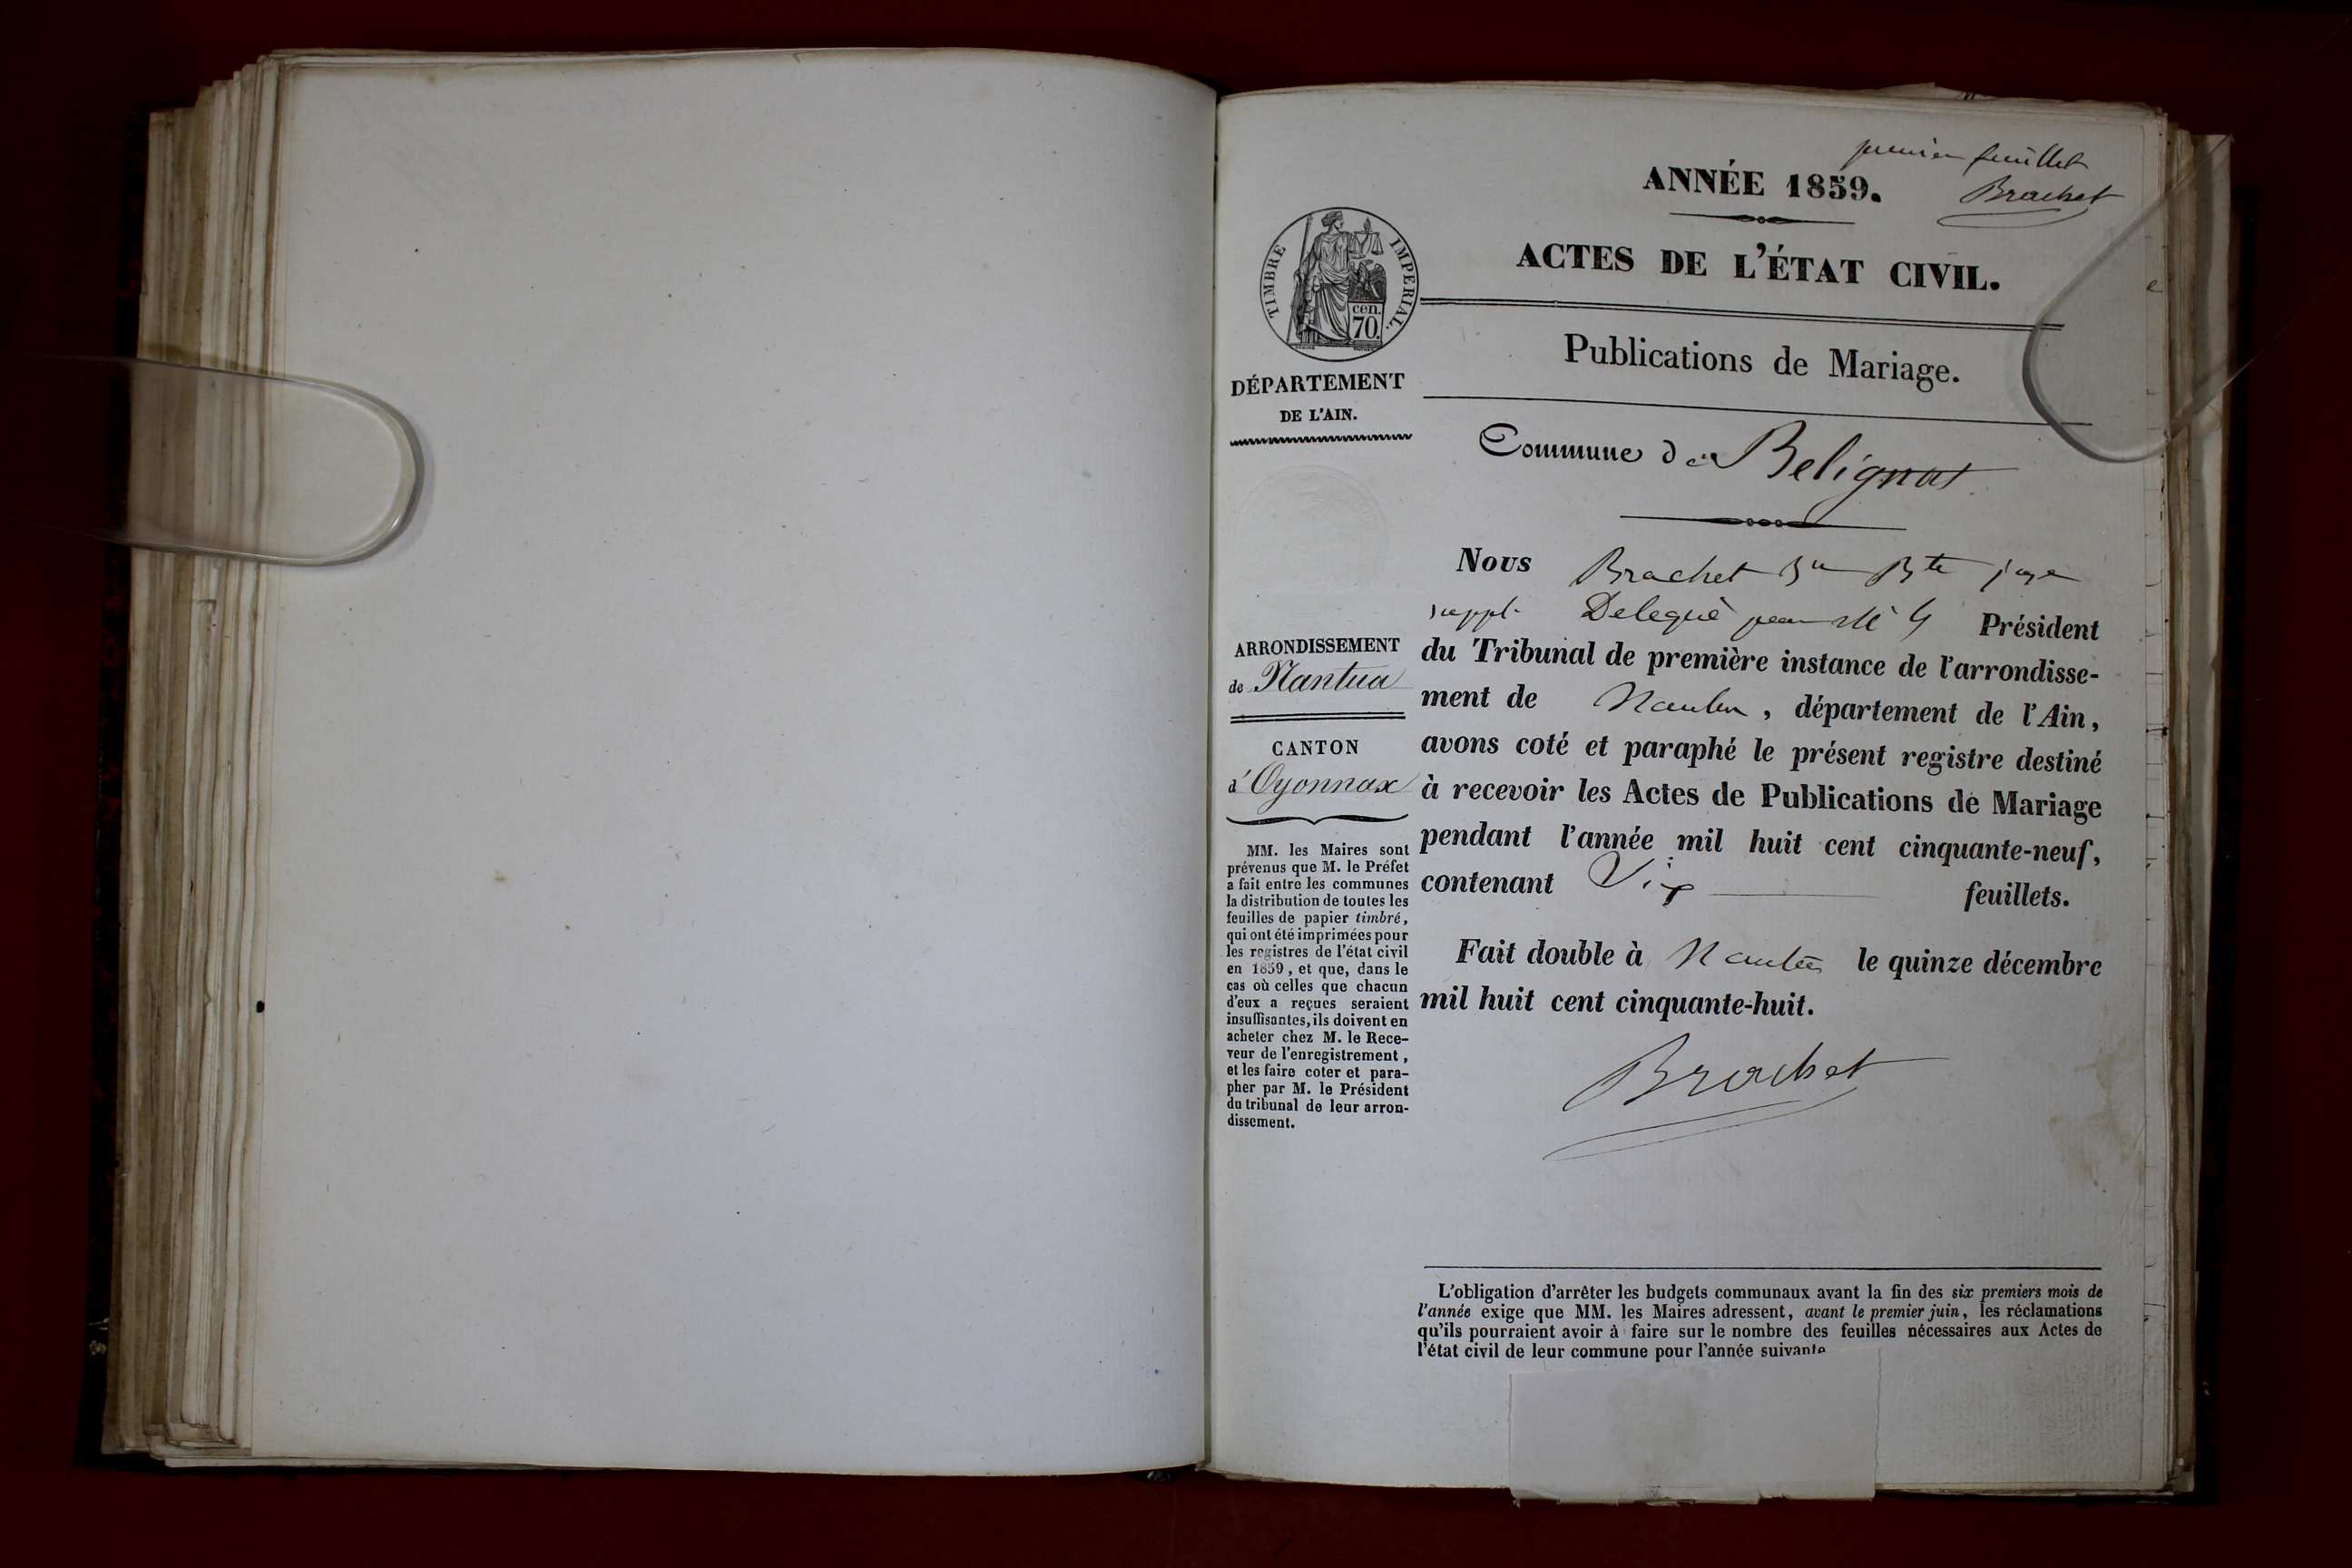 premier feuillet
ANNÉE 1859.
Brachet
ACTES DE L'ÉTAT CIVIL.
TIMBRE IMPERIAL.
cen.
70.
Publications de Mariage.
DÉPARTEMENT
DE L'AIN.
Commune de Belignat
Nous Brachet Jn Bte juge
suppl. Delegué par Mr le Président
du Tribunal de première instance de l'arrondisse-
ment de Nantua, département de l'Ain,
avons coté et paraphé le présent registre destiné
à recevoir les Actes de Publications de Mariage
pendant l'année mil huit cent cinquante-neuf,
contenant Six feuillets.
Fait double à Nantua le quinze décembre
mil huit cent cinquante-huit.
Brachet
ARRONDISSEMENT
de Nantua
CANTON
d'Oyonnax
MM. les Maires sont
prévenus que M. le Préfet
a fait entre les communes
la distribution de toutes les
feuilles de papier timbré,
qui ont été imprimées pour
les registres de l'état civil
en 1859, et que, dans le
cas où celles que chacun
d'eux a reçues seraient
insuffisantes, ils doivent en
acheter chez M. le Rece-
veur de l'enregistrement,
et les faire coter et para-
pher par M. le Président
du tribunal de leur arron-
dissement.
L'obligation d'arrêter les budgets communaux avant la fin des six premiers mois de
l'année exige que MM. les Maires adressent, avant le premier juin, les réclamations
qu'ils pourraient avoir à faire sur le nombre des feuilles nécessaires aux Actes de
l'état civil de leur commune pour l'année suivante